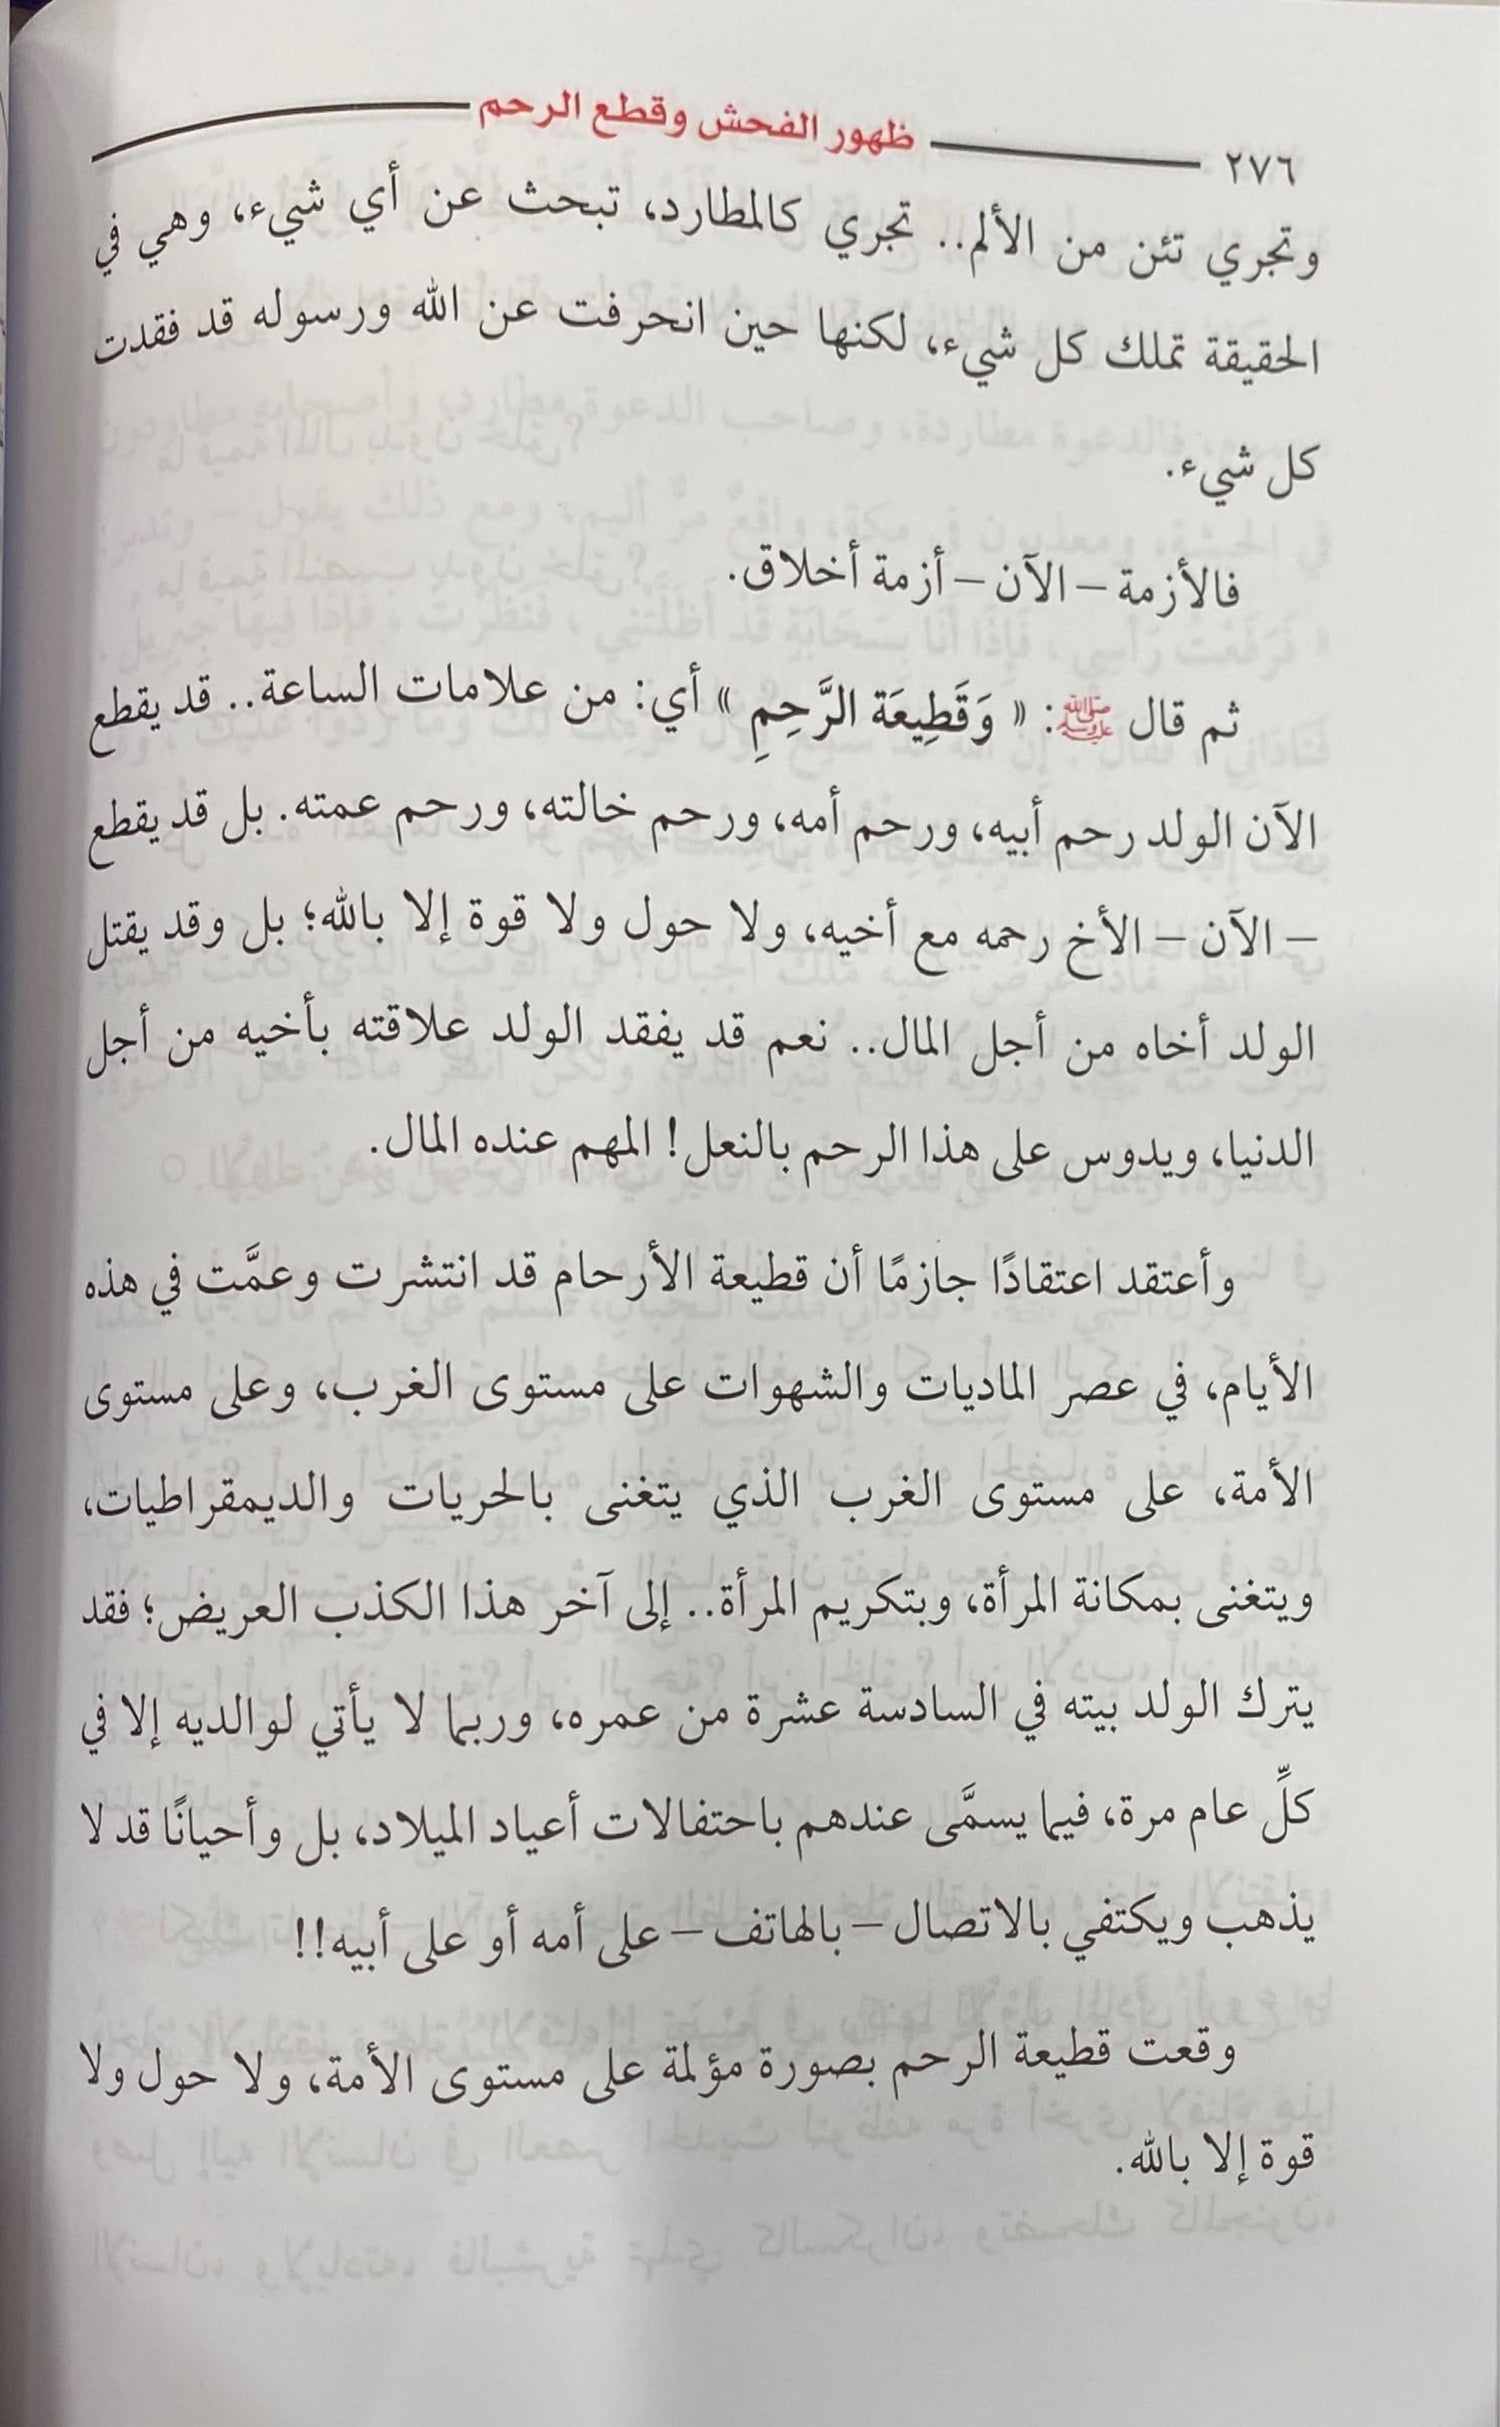 ٢٧٦ ظهور الفحش وقطع الرحم
وتجري تئن من الألم.. تجري كالمطارد، تبحث عن أي شيء، وهي في
الحقيقة تملك كل شيء، لكنها حين انحرفت عن الله ورسوله قد فقدت
كل شيء.
فالأزمة – الآن – أزمة أخلاق.
ثم قال ﷺ: « وَقَطِيعَة الرَّحِمِ » أي: من علامات الساعة.. قد يقطع
الآن الولد رحم أبيه، ورحم أمه، ورحم خالته، ورحم عمته. بل قد يقطع
– الآن – الأخ رحمه مع أخيه، ولا حول ولا قوة إلا بالله؛ بل وقد يقتل
الولد أخاه من أجل المال.. نعم قد يفقد الولد علاقته بأخيه من أجل
الدنيا، ويدوس على هذا الرحم بالنعل! المهم عنده المال.
وأعتقد اعتقادًا جازمًا أن قطيعة الأرحام قد انتشرت وعمَّت في هذه
الأيام، في عصر الماديات والشهوات على مستوى الغرب، وعلى مستوى
الأمة، على مستوى الغرب الذي يتغنى بالحريات والديمقراطيات،
ويتغنى بمكانة المرأة، وبتكريم المرأة.. إلى آخر هذا الكذب العريض؛ فقد
يترك الولد بيته في السادسة عشرة من عمره، وربما لا يأتي لوالديه إلا في
كلِّ عام مرة، فيما يسمَّى عندهم باحتفالات أعياد الميلاد، بل وأحيانًا قد لا
يذهب ويكتفي بالاتصال – بالهاتف – على أمه أو على أبيه!!
وقعت قطيعة الرحم بصورة مؤلمة على مستوى الأمة، ولا حول ولا
قوة إلا بالله.